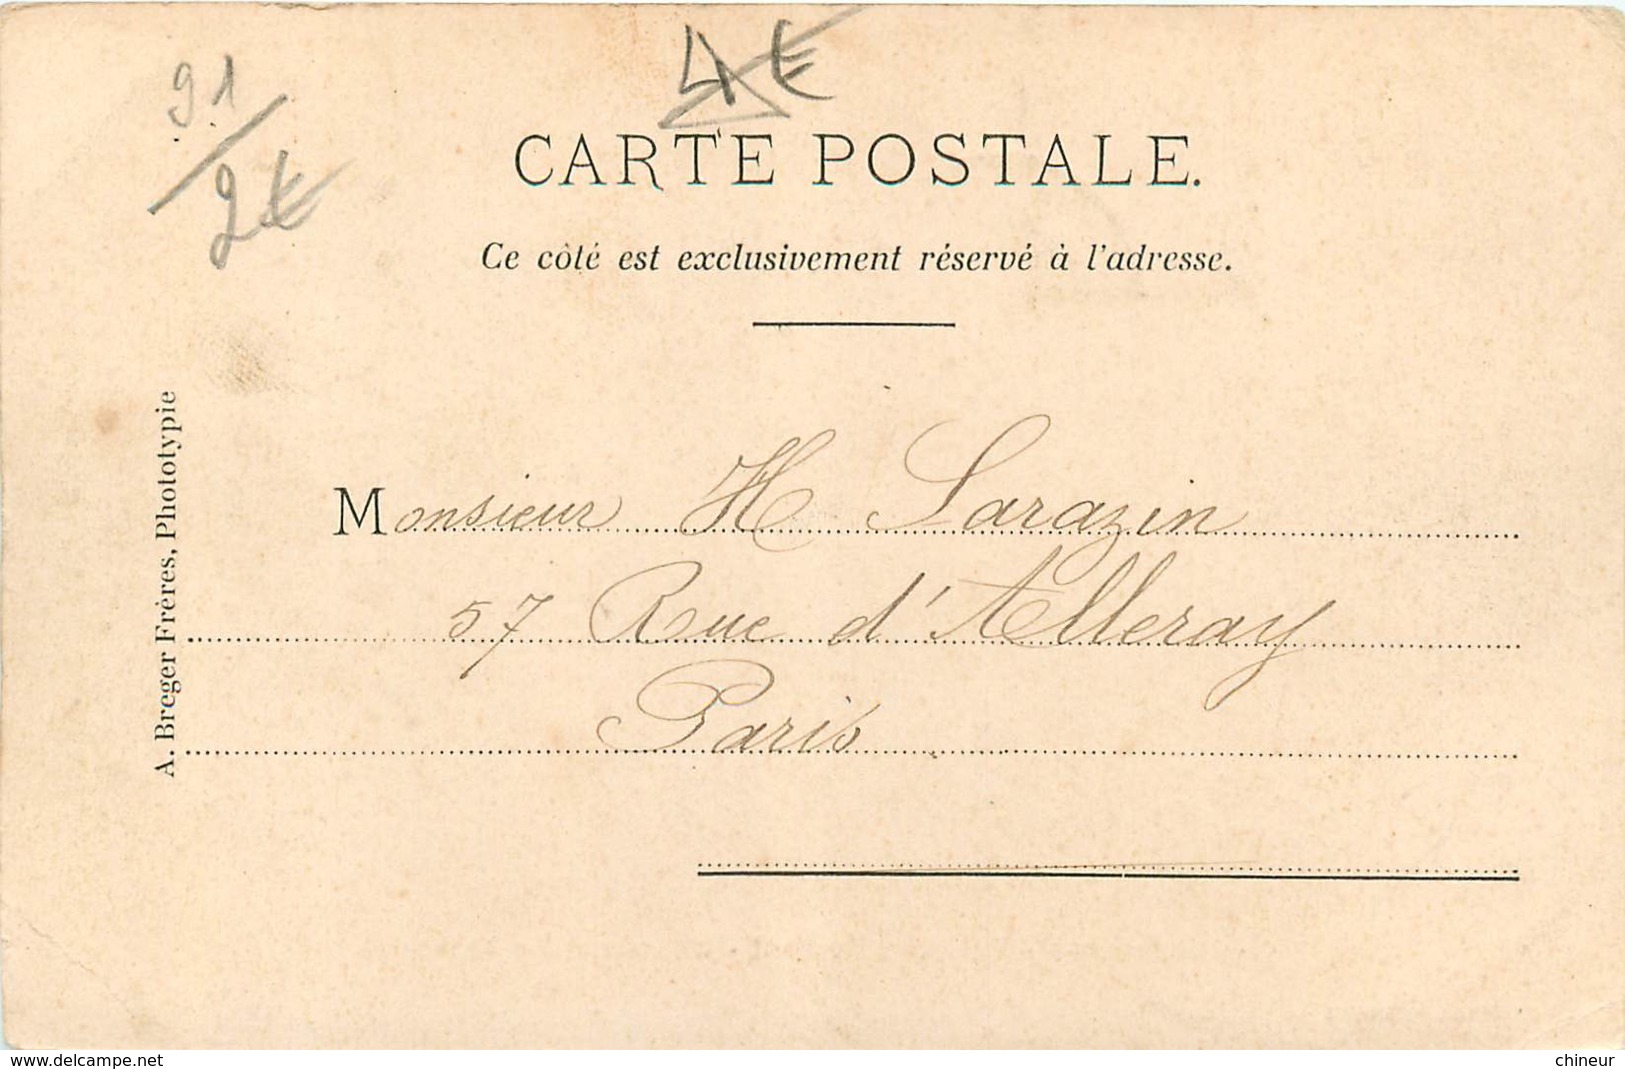 91
2€
4€
CARTE POSTALE.
Ce côté est exclusivement réservé à l'adresse.
A. Breger Frères, Phototypie
Monsieur H Sarazin
57 Rue d'Alleray
Paris
www.delcampe.net
chineur